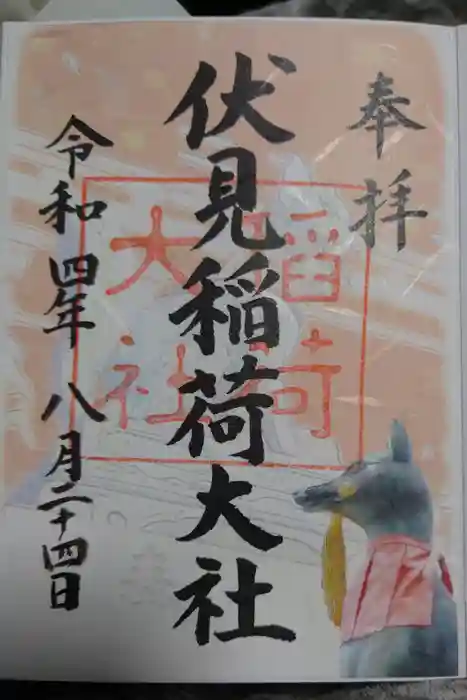 奉拝
伏見稲荷大社
稲荷
大社
令和四年八月二十四日